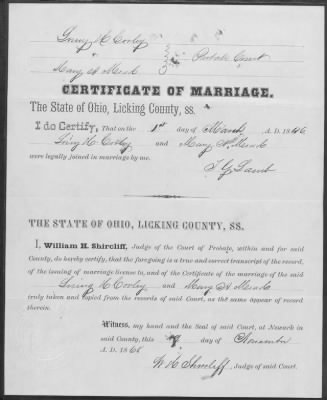 H. Corley
Probate Court
Mary A
CERTIFICATE OF MARRIAGE.
The State of Ohio, Licking County, ss.
I do Certify, That on the 1st day of March A. D. 1846
H. Corley and Mary A
were legally joined in marriage by me.
THE STATE OF OHIO, LICKING COUNTY, SS.
I, William H. Shircliff, Judge of the Court of Probate, within and for said
County, do hereby certify, that the foregoing is a true and correct transcript of the record,
of the issuing of marriage license to, and of the Certificate of the marriage of the said
H. Corley and Mary A
truly taken and copied from the records of said Court, as the same appear of record
therein.
Witness, my hand and the Seal of said Court, at Newark in
said County, this day of November
A. D. 1868
W H Shircliff, Judge of said Court.